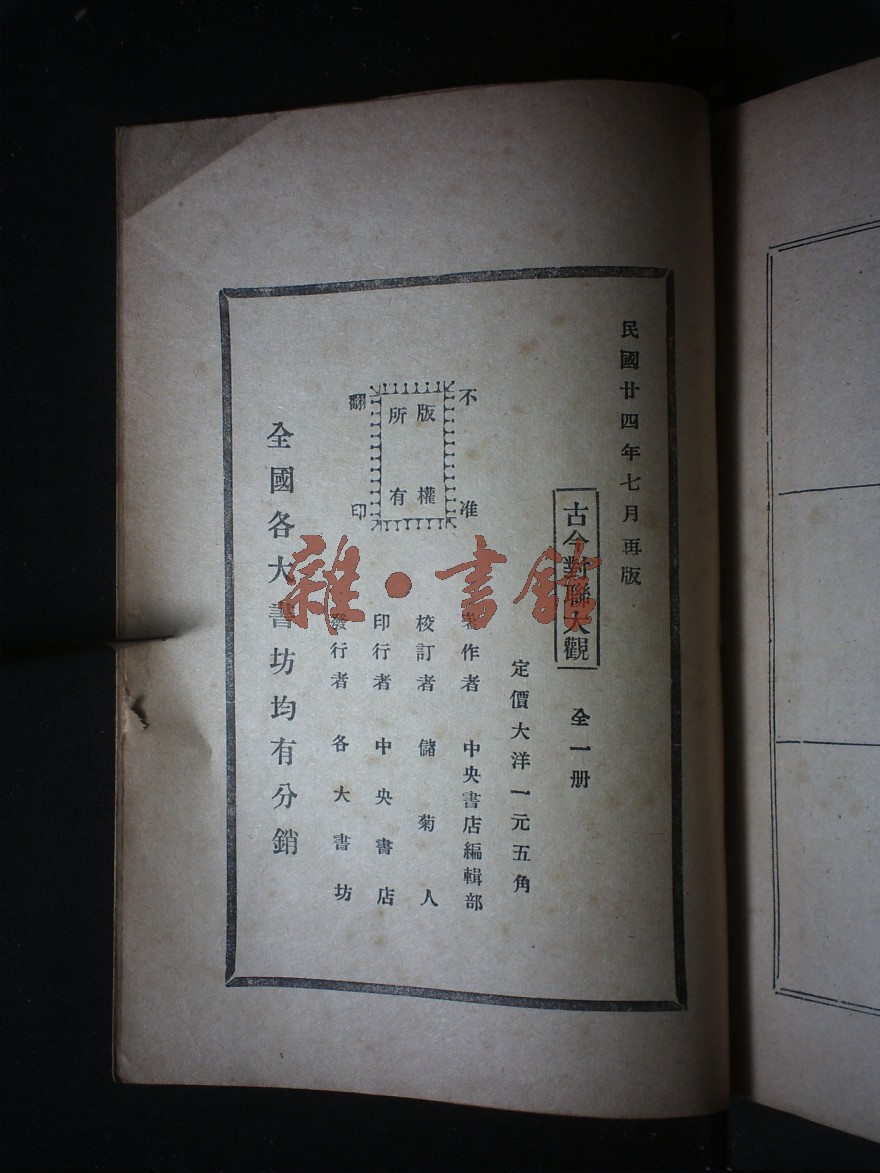 民國廿四年七月再版
古今對聯大觀 全一册
定價大洋一元五角
著作者 中央書店編輯部
校訂者 儲菊人
印行者 中央書店
發行者 各大書坊
不准
版權
所有
翻印
全國各大書坊均有分銷
雜·書館